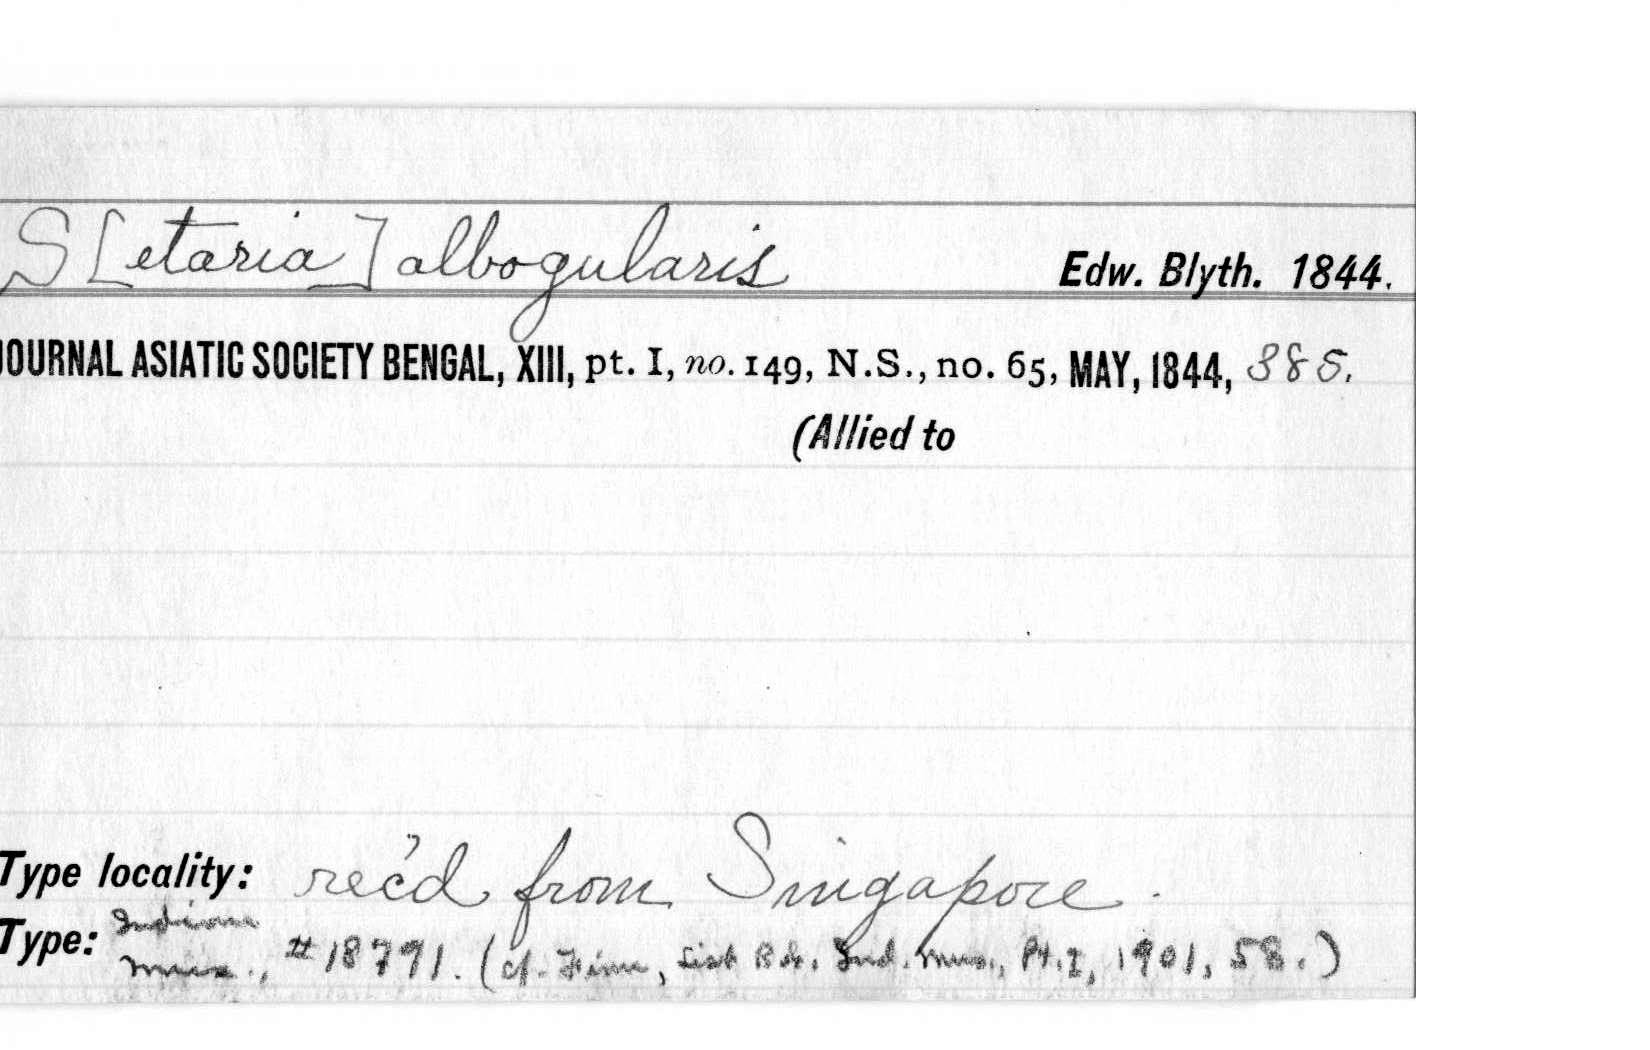 S[etaria] albogularis Edw. Blyth. 1844.
JOURNAL ASIATIC SOCIETY BENGAL, XIII, pt. I, no. 149, N.S., no. 65, MAY, 1844, 385.
(Allied to
Type locality: rec'd from Singapore.
Type: Indian
Mus., #18791. (cf. Finn, List Bds. Ind. Mus., Pt. I, 1901, 58.)